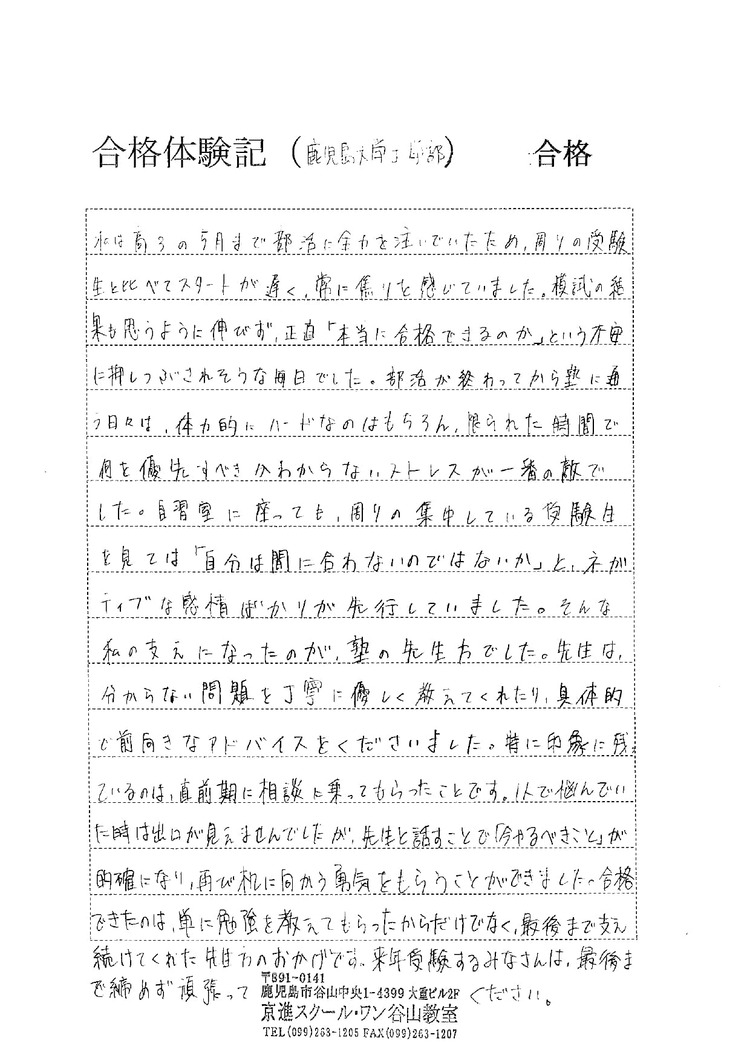 合格体験記（鹿児島大学工学部） 合格
私は高3の5月まで部活に全力を注いでいたため、周りの受験
生と比べてスタートが遅く、常に焦りを感じていました。模試の結
果も思うように伸びず、正直「本当に合格できるのか」という不安
に押しつぶされそうな毎日でした。部活が終わってから塾に通
う日々は、体力的にハードなのはもちろん、限られた時間で
何を優先すべきかわからないストレスが一番の敵で
した。自習室に座っても、周りの集中している受験生
を見ては「自分は間に合わないのではないか」と、ネガ
ティブな感情ばかりが先行していました。そんな
私の支えになったのが、塾の先生方でした。先生は、
分からない問題を丁寧に優しく教えてくれたり、具体的
で前向きなアドバイスをくださいました。特に印象に残っ
ているのは、直前期に相談に乗ってもらったことです。1人で悩んでい
た時は出口が見えませんでしたが、先生と話すことで「今やるべきこと」が
的確になり、再び机に向かう勇気をもらうことができました。合格
できたのは、単に勉強を教えてもらったからだけでなく、最後まで支え
続けてくれた先生方のおかげです。来年受験するみなさんは、最後ま
で締めず頑張ってください。
〒891-0141
鹿児島市谷山中央1-4399 大重ビル2F
京進スクール・ワン谷山教室
TEL(099)263-1205 FAX(099)263-1207